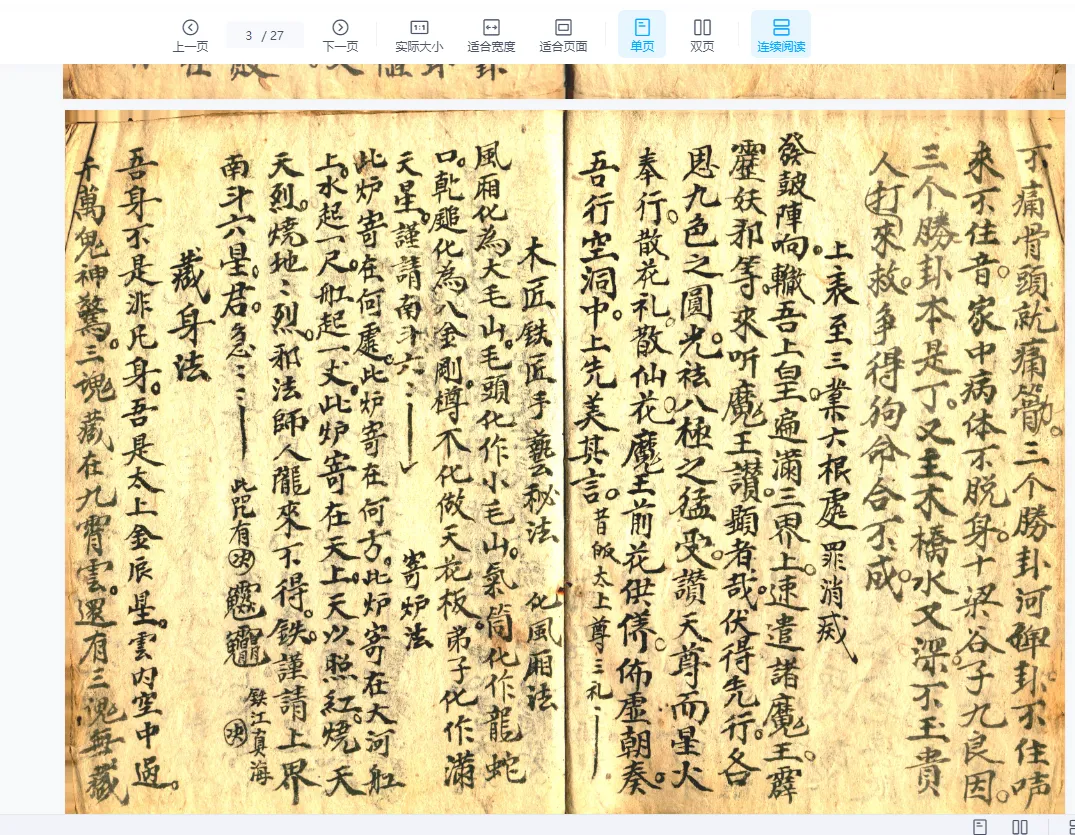 上一页
3 / 27
下一页
1:1
实际大小
适合宽度
适合页面
单页
双页
连续阅读
不痛骨頭就痛筋。三个勝卦河卦不住
来不住音。家中病体不脱身。十梁谷子九良因。
三个勝卦本是丁。又主木橋水又深。不玉貴
人打来救。争得狗命合不成。
上表至三業六根處 罪消滅
發皷陣响。轍吾上皇遍滿三界上。速遣諸魔王。霹
靂妖邪等。來听魔王讃。顕者哉。伏得先行。各
恩九色之圓光。祛八極之猛受。讃天尊而星火
奉行。散花礼。散仙花。魔王前花供俻。佈虚朝奏。
吾行空洞中。上先美其言。昔皈太上尊三礼
木匠鉄匠手藝秘法 化風厢法
風厢化為大毛山。毛頭化作小毛山。氣筒化作龍蛇
口。乾鎚化為八金剛。樽不化做天花板。弟子化作滿
天星。謹請南斗六 寄炉法
此炉寄在何處。此炉寄在何方。此炉寄在大河舡
上。水起一尺。舡起一丈。此炉寄在天上。天火照紅。燒天
天烈。燒地地烈。邪法師人隴來不得。鉄謹請上界
南斗六星君。急 此咒有 鉄江真海
藏身法
吾身不是非凡身。吾是太上金辰星。雲内空中過。
千萬鬼神驚。三魂藏在九霄雲。還有三魂無藏